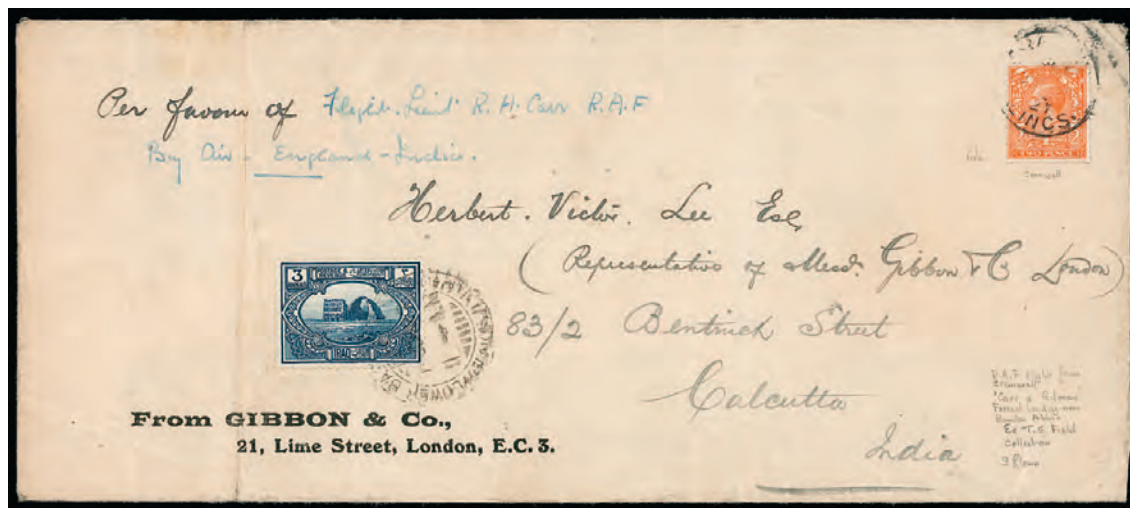 Per favour of Flight. Lieut R. H. Carr R.A.F
By Air - England - India.
TWO PENCE
Cranwell
Herbert. Victor. Lee Esq,
(Representative of Messrs. Gibbon & Co London)
3
IRAQ
83/2 Bentinck Street
Calcutta
India
From GIBBON & Co.,
21, Lime Street, London, E.C. 3.
R.A.F flight from
Cranwell
Carr & Gilman
Forced landing near
Bandar Abbas
Ex T.E. Field
Collection
3 flown